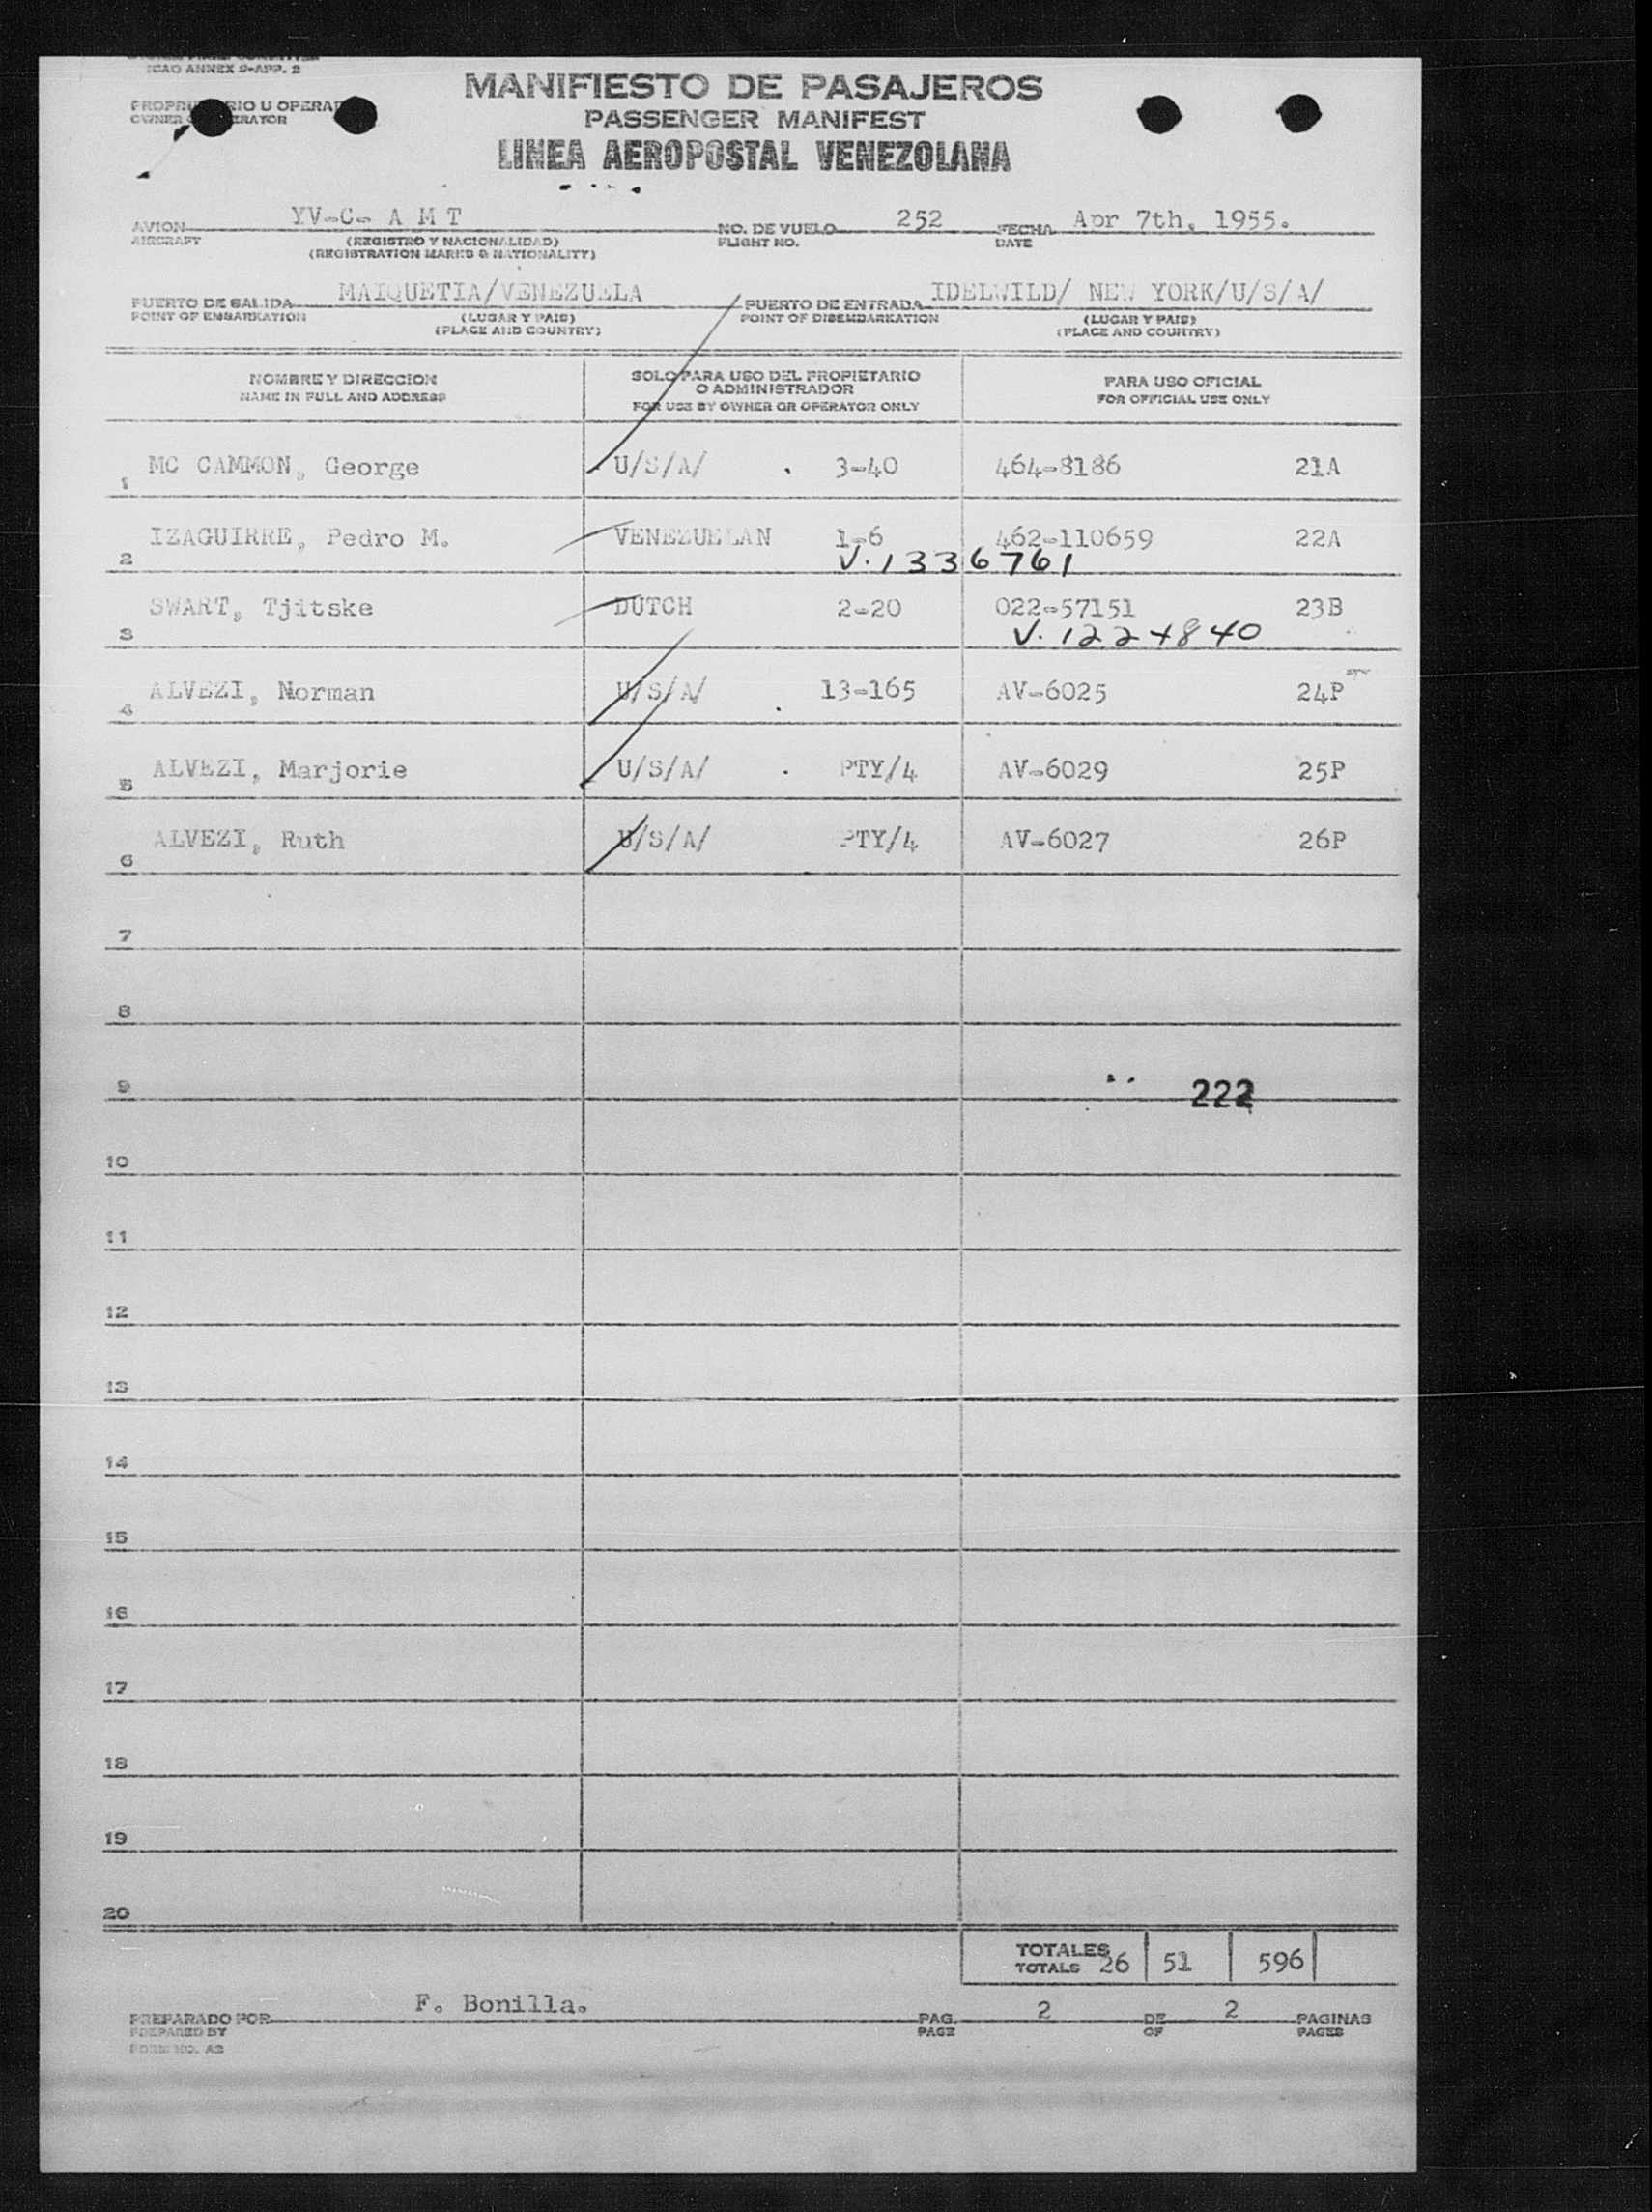 ICAO ANNEX 9-APP. 2
MANIFIESTO DE PASAJEROS
PASSENGER MANIFEST
LINEA AEROPOSTAL VENEZOLANA
AVION YV-C- A M T NO. DE VUELO 252 FECHA Apr 7th, 1955.
AIRCRAFT (REGISTRO Y NACIONALIDAD) FLIGHT NO. DATE
(REGISTRATION MARKS & NATIONALITY)
PUERTO DE SALIDA MAIQUETIA/VENEZUELA PUERTO DE ENTRADA IDELWILD/ NEW YORK/U/S/A/
POINT OF EMBARKATION (LUGAR Y PAIS) POINT OF DISEMBARKATION (LUGAR Y PAIS)
(PLACE AND COUNTRY) (PLACE AND COUNTRY)
NOMBRE Y DIRECCION SOLO PARA USO DEL PROPIETARIO PARA USO OFICIAL
O ADMINISTRADOR
NAME IN FULL AND ADDRESS FOR USE BY OWNER OR OPERATOR ONLY FOR OFFICIAL USE ONLY
1 MC CAMMON, George U/S/A/ 3-40 464-8186 21A
2 IZAGUIRRE, Pedro M. VENEZUELAN 1-6 462-110659 22A
V. 1336761
3 SWART, Tjitske DUTCH 2-20 022-57151 23B
V. 122+840
4 ALVEZI, Norman U/S/A/ 13-165 AV-6025 24P
5 ALVEZI, Marjorie U/S/A/ PTY/4 AV-6029 25P
6 ALVEZI, Ruth U/S/A/ PTY/4 AV-6027 26P
7
8
9 222
10
11
12
13
14
15
16
17
18
19
20
TOTALES
TOTALS 26 51 596
PREPARADO POR F. Bonilla. PAG. 2 DE 2 PAGINAS
PREPARED BY PAGE OF PAGES
FORM NO. A3